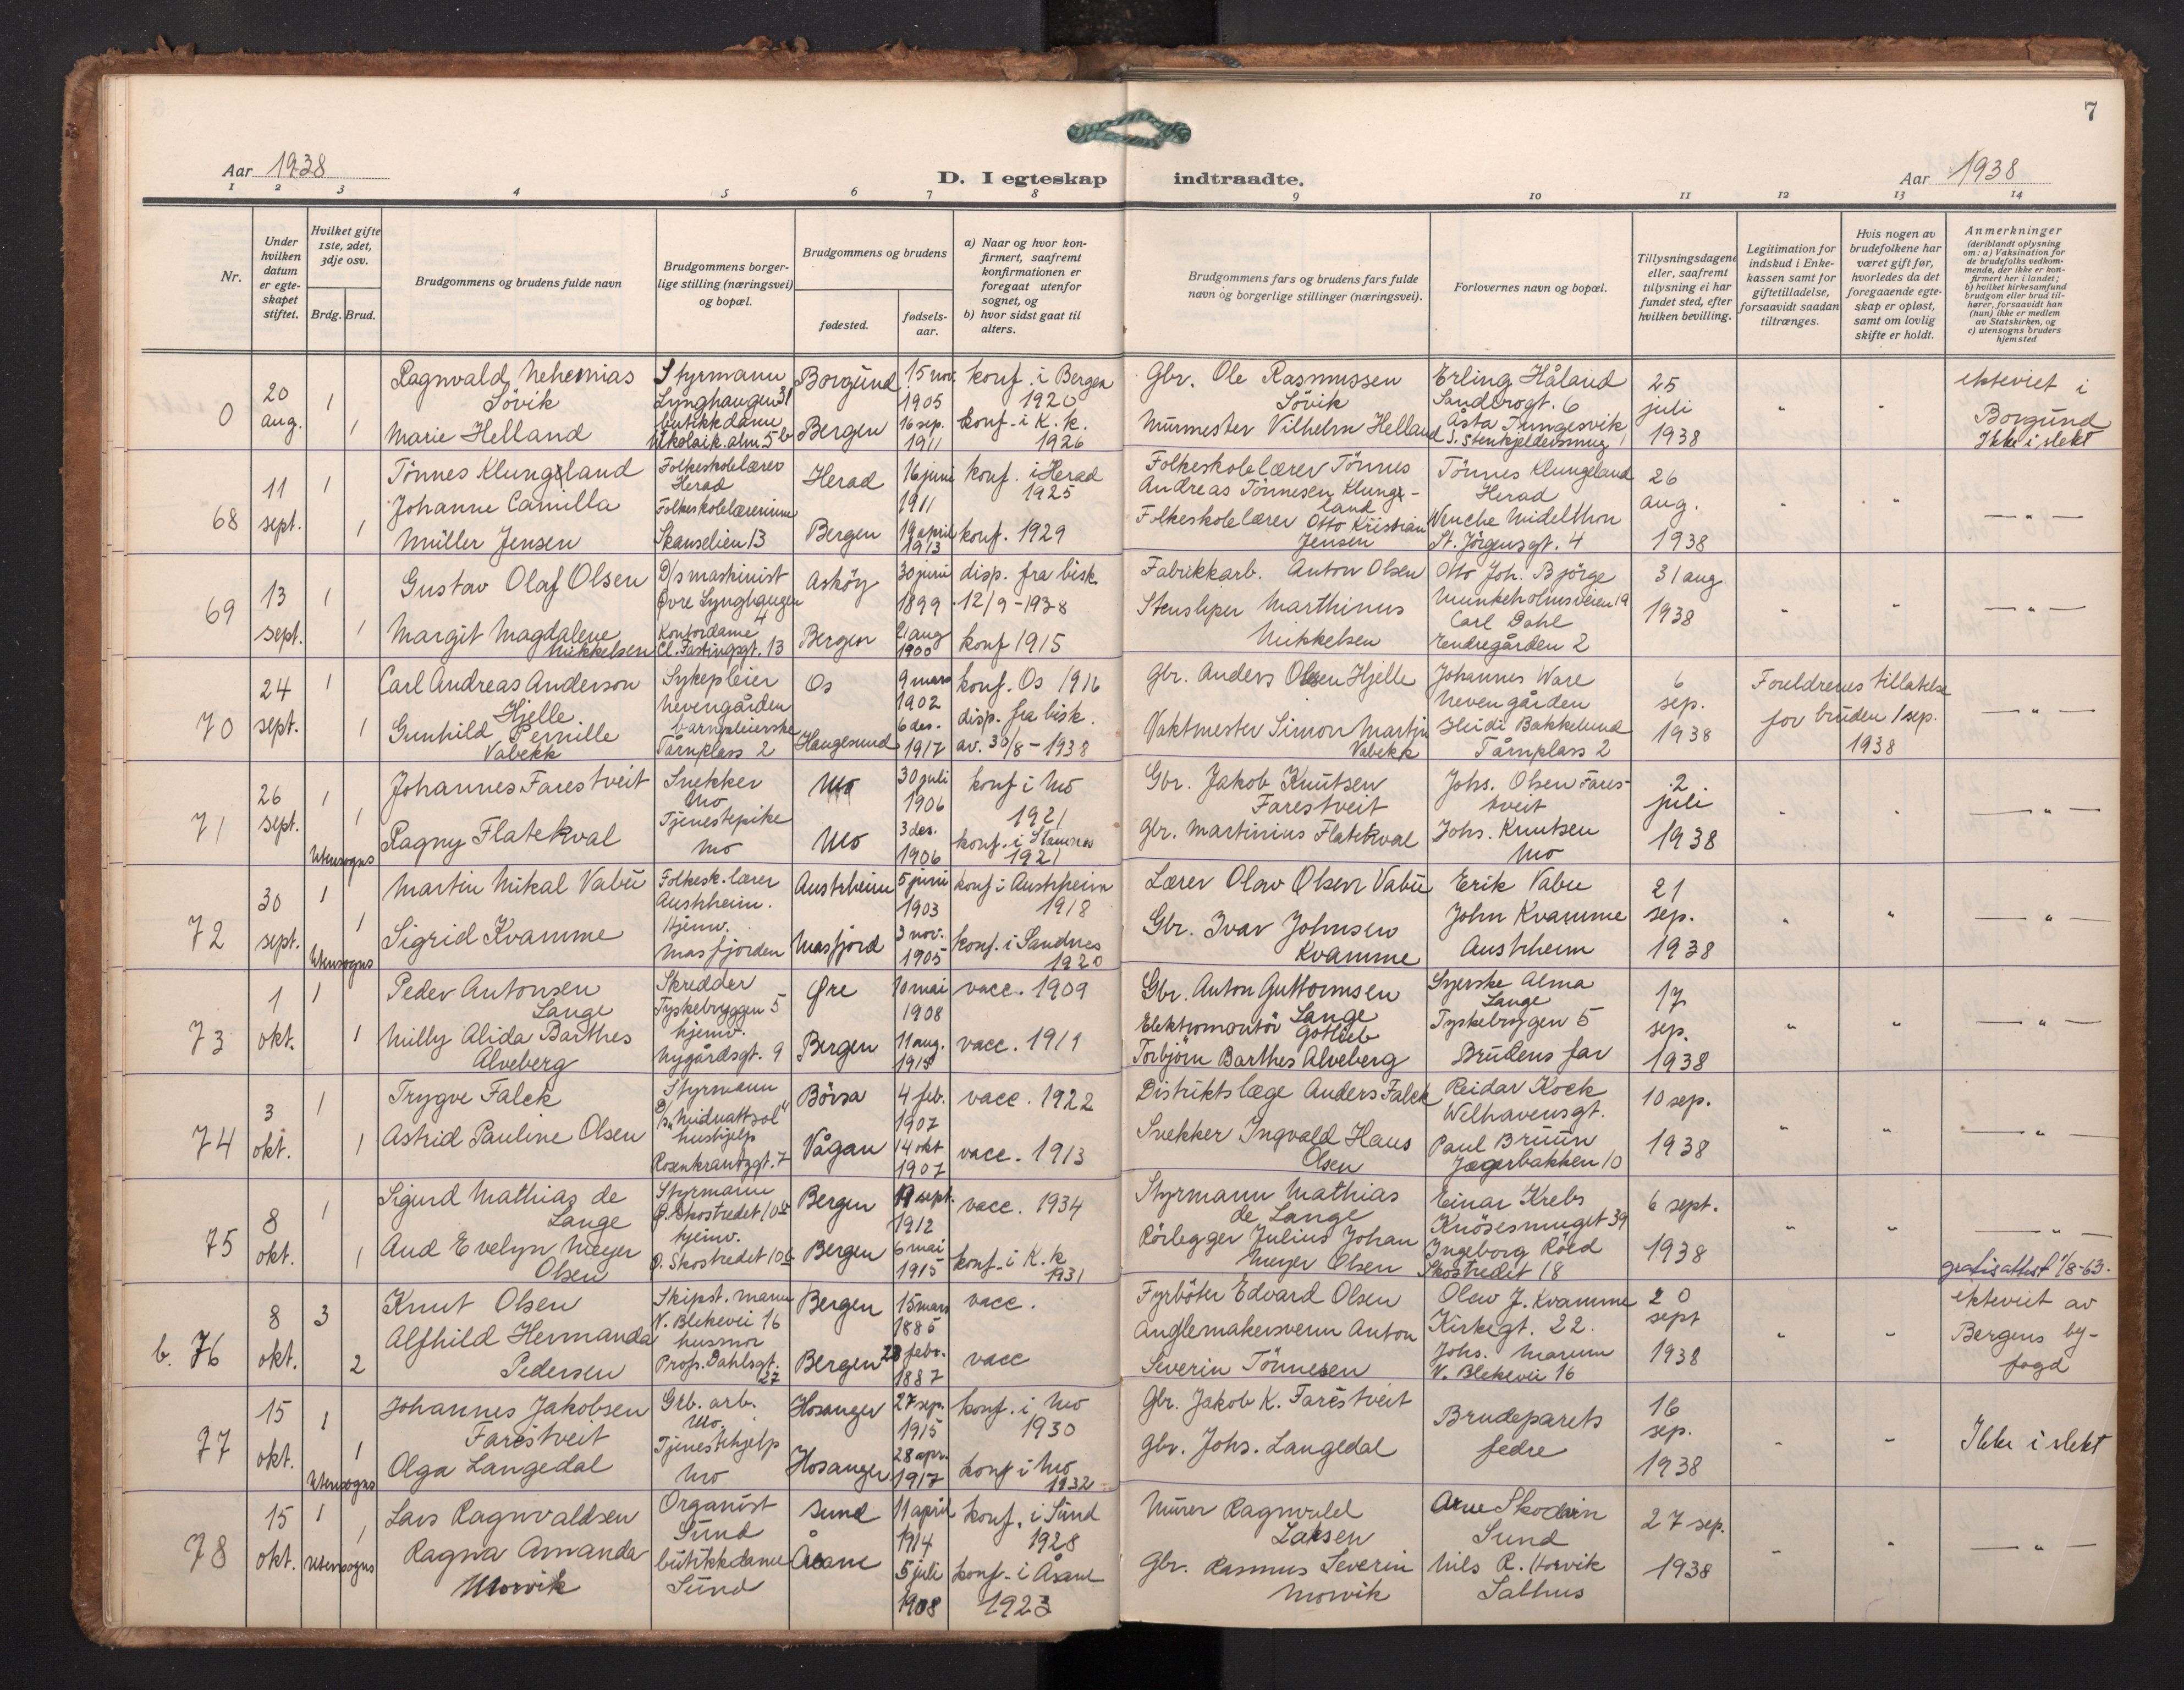 7
Aar 1938
D. I egteskap indtraadte.
Aar 1938
1 2 3 4 5 6 7 8 9 10 11 12 13 14
Nr.
Under hvilken datum er egteskapet stiftet.
Hvilket gifte 1ste, 2det, 3dje osv.
Brdg. Brud.
Brudgommens og brudens fulde navn
Brudgommens borgerlige stilling (næringsvei) og bopæl.
Brudgommens og brudens
fødested.
fødselsaar.
a) Naar og hvor konfirmert, saafremt konfirmationen er foregaat utenfor sognet, og
b) hvor sidst gaat til alters.
Brudgommens fars og brudens fars fulde navn og borgerlige stillinger (næringsvei).
Forlovernes navn og bopæl.
Tillysningsdagene eller, saafremt tillysning ei har fundet sted, efter hvilken bevilling.
Legitimation for indskud i Enkekassen samt for giftetilladelse, forsaavidt saadan tiltrænges.
Hvis nogen av brudefolkene har været gift før, hvorledes da det foregaaende egteskap er opløst, samt om lovlig skifte er holdt.
Anmerkninger
(deriblandt oplysning om: a) Vaksination for de brudefolks vedkommende, der ikke er konfirmert her i landet; b) hvilket kirkesamfund brudgom eller brud tilhører, forsaavidt han (hun) ikke er medlem av Statskirken, og c) utensogns bruders hjemsted
0 20 aug. 1 1
Ragnvald Nehemias Søvik
Styrmann Lynghaugen 31
Borgund 15 nov. 1905
konf. i Bergen 1920
Marie Helland
butikkdame Nikolaik.alm. 5b
Bergen 16 sep. 1911
konf. i K. k. 1926
Gbr. Ole Rasmussen Søvik
Murmester Vilhelm Helland
Erling Håland
Sandbrogt. 6
Åsta Tungesvik
S. Stenkjeldersmug 1
25 juli 1938
ekteviet i Borgund
Ikke i slekt
68 11 sept. 1 1
Tönnes Klungeland
Folkeskolelærer Herad
Herad 16 juni 1911
konf. i Herad 1925
Johanne Camilla Müller Jensen
Folkeskolelærerinne Skanselien 13
Bergen 19 april 1913
konf. 1929
Folkeskolelærer Tönnes Andreas Tönnesen Klungeland
Folkeskolelærer Otto Kristian Jensen
Tönnes Klungeland
Herad
Wenche Midelthon
St. Jörgensgt. 4
26 aug. 1938
— " —
69 13 sept. 1 1
Gustav Olaf Olsen
D/s maskinist Øvre Lynghaugen 4
Asköy 30 juni 1899
disp. fra bisk. 12/9-1938
Margit Magdalene Mikkelsen
Kontordame Cl. Fastingsgt. 13
Bergen 21 aug 1900
konf 1915
Fabrikkarb. Anton Olsen
Stensliper Marthinus Mikkelsen
Otto Joh. Bjørge
Munkeholmsveien 19
Carl Dahl
Endregården 2
31 aug 1938
— " —
70 24 sept. 1 1
Carl Andreas Anderson Hjelle
Sykepleier Nevengården
Os 9 mars 1902
konf. Os 1916
Gunhild Pernille Vabekk
barnepleierske Tårnplass 2
Haugesund 6 des. 1917
disp. fra bisk. av. 30/8-1938
Gbr. Anders Olsen Hjelle
Vaktmester Simon Martin Vabekk
Johannes Ware
Nevengården
Heidi Bakkelund
Tårnplass 2
6 sep. 1938
Foreldrenes tillatelse for bruden 1 sep. 1938
— " —
71 26 sept. 1 1 Utensogns
Johannes Farestveit
Snekker Mo
Mo 30 juli 1906
konf i Mo 1921
Ragny Flatekval
Tjenestepike Mo
Mo 3 des. 1906
konf. i Stamnes 1921
Gbr. Jakob Knutsen Farestveit
Gbr. Martinius Flatekval
Johs. Olsen Farestveit
Johs. Knutsen
Mo
2 juli 1938
— " —
72 30 sept. 1 1 Utensogns
Martin Mikal Vabö
Folkesk. lærer Austrheim.
Austrheim 5 juni 1903
konf i Austrheim 1918
Sigrid Kvamme
Hjemv. Masfjorden
Masfjord 3 nov. 1905
konf. i Sandnes 1920
Lærer Olav Olsen Vabö
Gbr. Ivar Johnsen Kvamme
Erik Vabø
John Kvamme
Austrheim
21 sep. 1938
— " —
73 1 okt. 1 1
Peder Antonsen Lange
Skredder Tyskebryggen 5
Øre 10 mai 1908
vacc. 1909
Milly Alida Barthes Alveberg
hjemv. Nygårdsgt. 9
Bergen 11 aug. 1915
vacc. 1919
Gbr. Anton Guttormsen Lange
Elektromontör Gotlieb Torbjörn Barthes Alveberg
Syerske Alma Lange
Tyskebryggen 5
Brudens far
17 sep. 1938
— " —
74 3 okt. 1 1
Trygve Falck
Styrmann D/s "Midnattsol"
Börsa 4 feb. 1907
vacc. 1922
Astrid Pauline Olsen
hushjelp Rosenkrantzgt. 7
Vågan 14 okt 1907
vacc. 1913
Distriktslæge Anders Falck
Snekker Ingvald Haus Olsen
Reidar Kock
Welhavensgt.
Paul Bruun
Jægerbakken 10
10 sep. 1938
— " —
75 8 okt. 1 1
Sigurd Mathias de Lange
Styrmann Ø. Skostredet 10b
Bergen 19 sept. 1912
vacc. 1934
Aud Evelyn Meyer Olsen
hjemv. Ø. Skostredet 10b
Bergen 6 mai 1915
konf. i K. k 1931
Styrmann Mathias de Lange
Rörlegger Julius Johan Meyer Olsen
Einar Krebs
Knösesmuget 39
Ingeborg Röed
Skostredet 18
6 sept. 1938
— " —
gratisattest 1/8-63.
b. 76 8 okt. 3 2
Knut Olsen
Skipst. mann V. Blekevei 16
Bergen 15 mars 1885
vacc.
Alfhild Hermanda Pedersen
husmor Prof. Dahlsgt. 27
Bergen 28 febr. 1887
vacc
Fyrböter Edvard Olsen
Anglemakersvenn Anton Severin Tönnesen
Olav J. Kvamme
Kirkegt. 22.
Johs. Marum
V. Blekevei 16
20 sept 1938
ekteviet av Bergens byfogd
77 15 okt. 1 1 Utensogns
Johannes Jakobsen Farestveit
Grb. arb. Mo.
Hosanger 27 sep. 1915
konf. i Mo 1930
Olga Langedal
Tjenestehjelp Mo
Hosanger 28 apr. 1917
konf i Mo 1932
Gbr. Jakob K. Farestveit
Gbr. Johs. Langedal
Brudeparets fedre
16 sep. 1938
Ikke i slekt
78 15 okt. 1 1 Utensogns
Lars Ragnvaldsen
Organist Sund
Sund 11 april 1914
konf. i Sund 1928
Ragna Amanda Morvik
butikkdame Sund
Åsane 5 juli 1908
konf. i Åsane 1923
Murer Ragnvald Larsen
Gbr. Rasmus Severin Morvik
Arne Skodvin
Sund
Nils R. Horvik
Salhus
27 sep. 1938
— " —